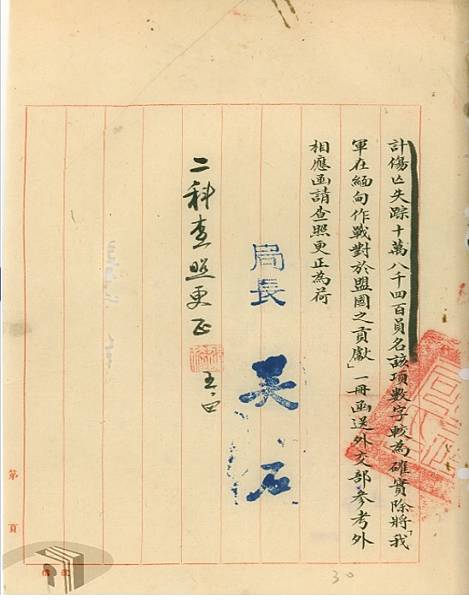 計傷亡失踪十萬八千四百員名該項數字較為確實除將「我
軍在緬甸作戰對於盟國之貢獻」一冊函送外交部參考外
相應函請查照更正為荷
局長 吳石
二科查照更正
五、四
第 頁
30